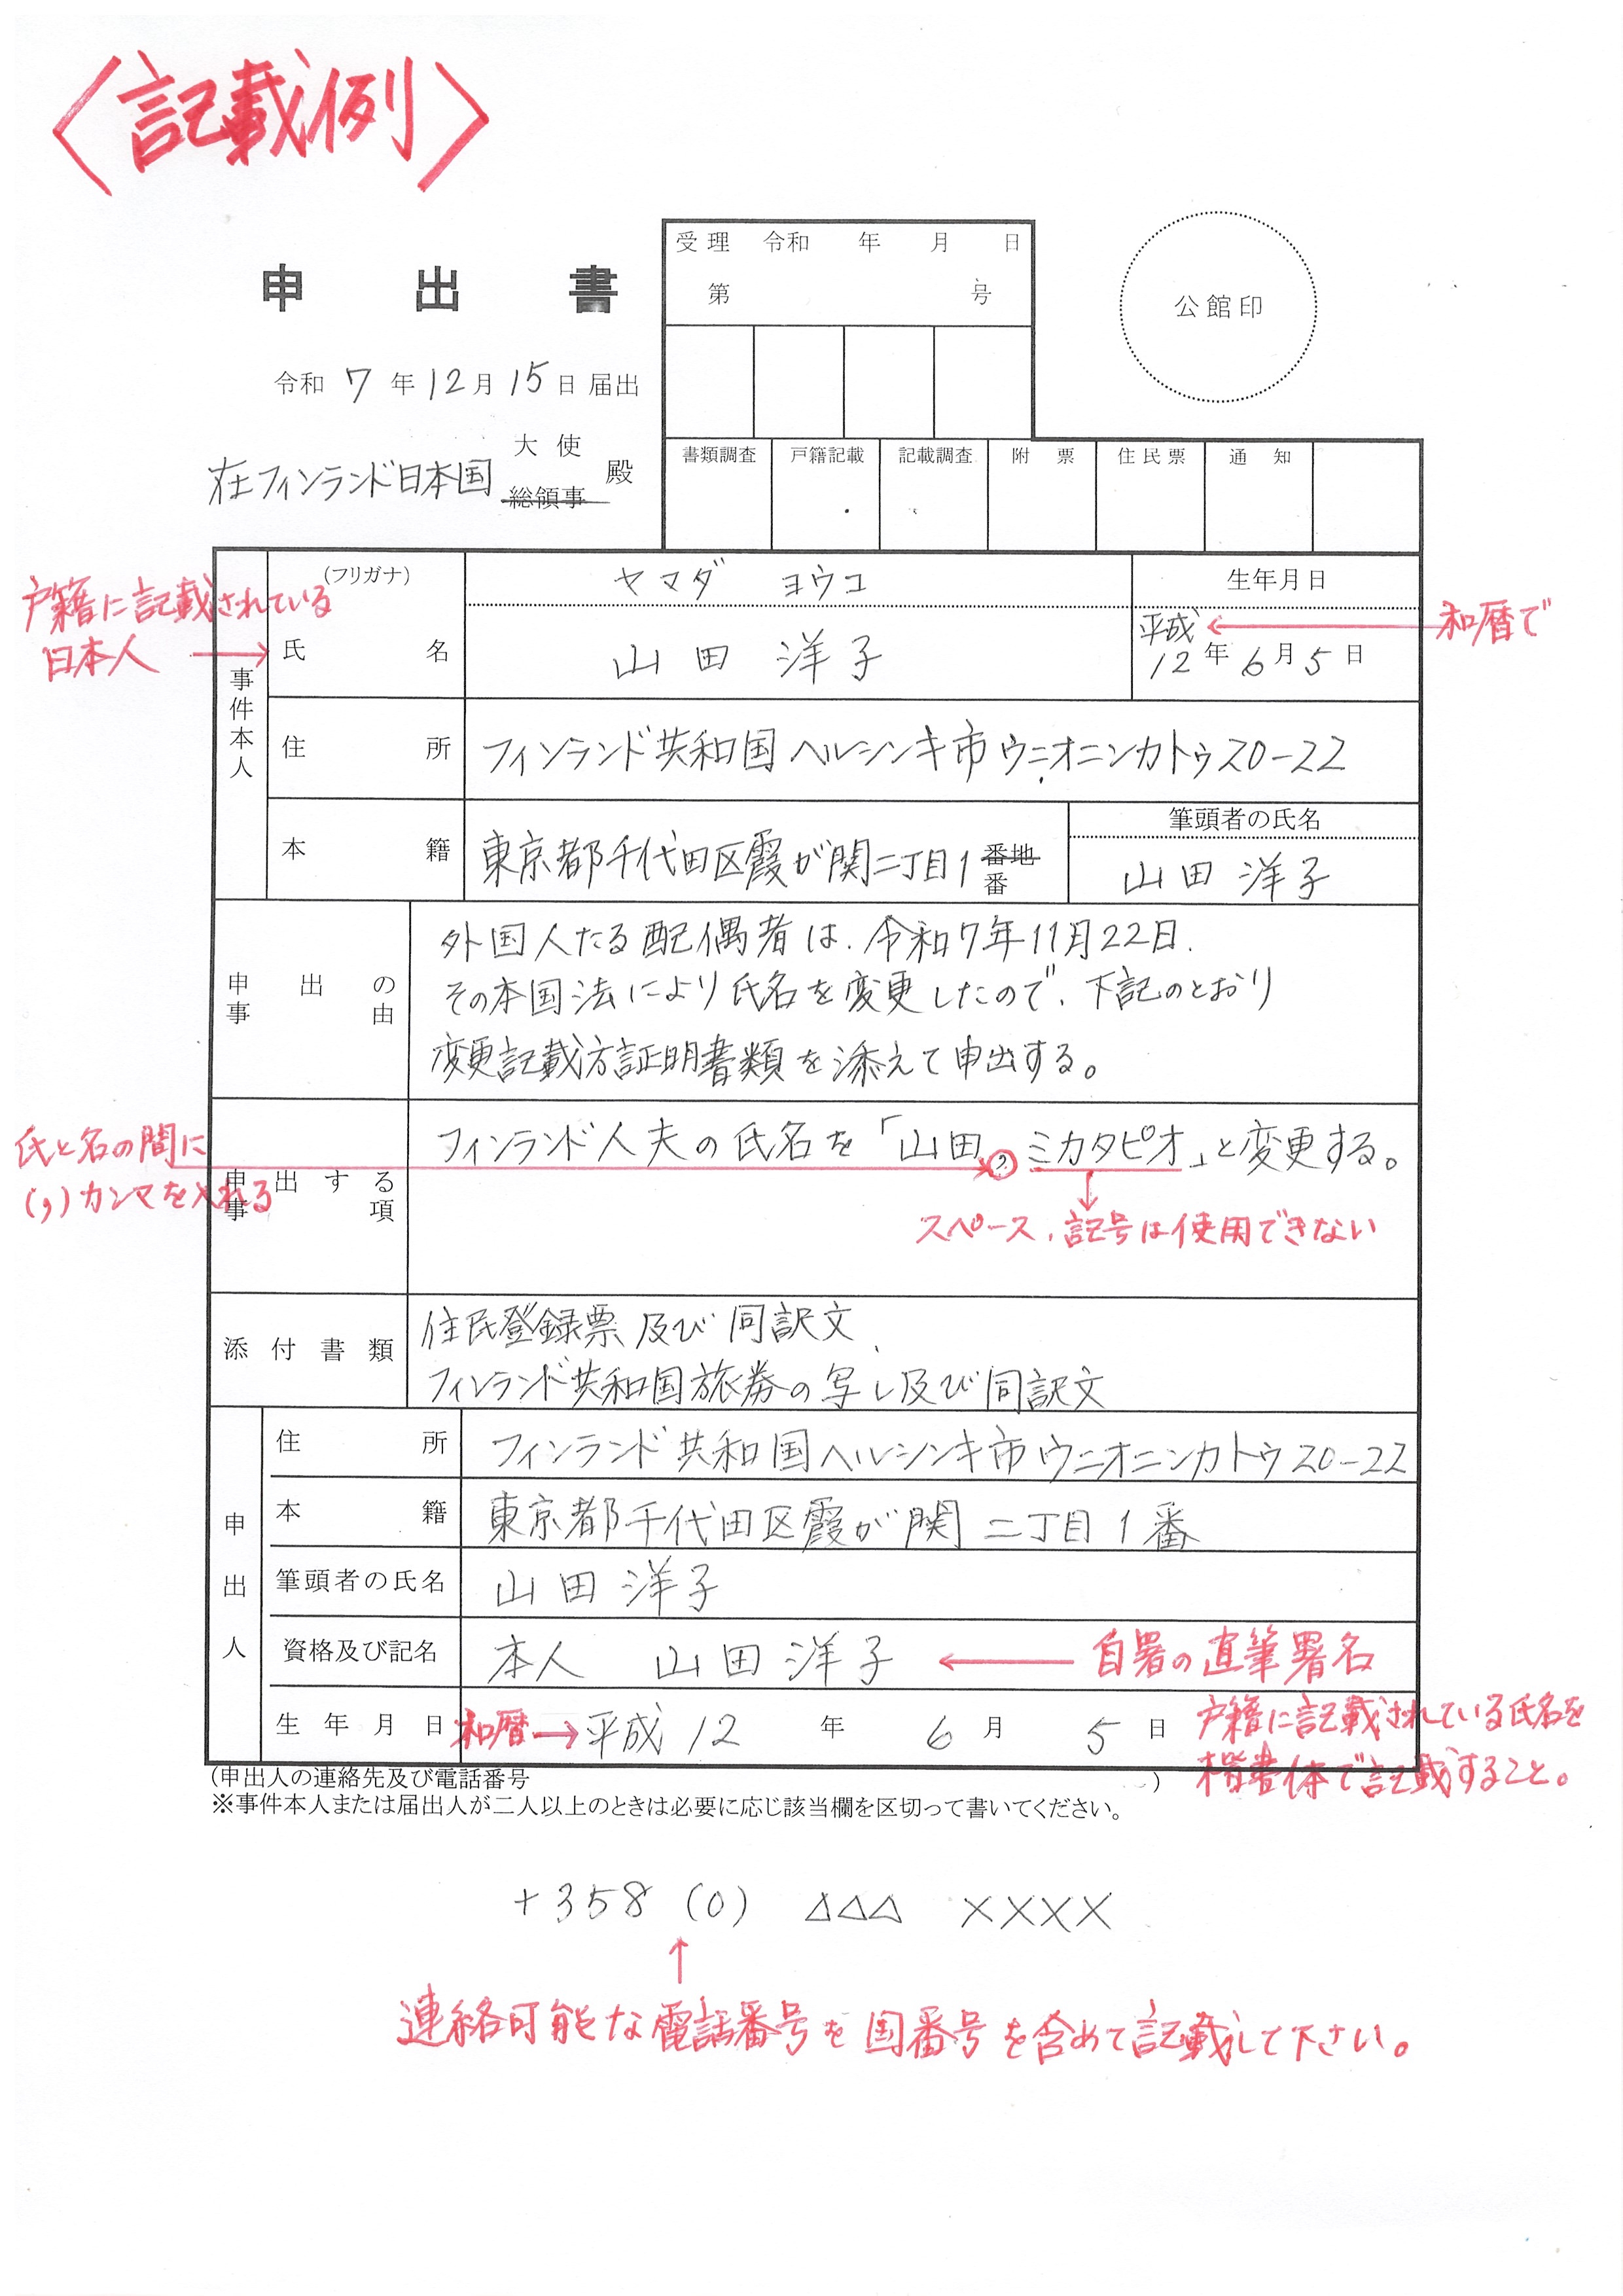 〈記載例〉
申出書
令和7年12月15日届出
在フィンランド日本国 大使 総領事 殿
受理 令和 年 月 日
第 号
公館印
書類調査 戸籍記載 記載調査 附票 住民票 通知
戸籍に記載されている
日本人
事件本人
(フリガナ) ヤマダ ヨウコ
氏名 山田 洋子
生年月日
平成
12年6月5日
和暦で
住所 フィンランド共和国ヘルシンキ市ウニオニンカトゥ20-22
本籍 東京都千代田区霞が関二丁目1 番地 番
筆頭者の氏名
山田 洋子
申出の事由
外国人たる配偶者は、令和7年11月22日、
その本国法により氏名を変更したので、下記のとおり
変更記載方証明書類を添えて申出する。
氏と名の間に
(,)カンマを入れる
申出する事項
フィンランド人夫の氏名を「山田,ミカタピオ」と変更する。
スペース、記号は使用できない
添付書類
住民登録票及び同訳文
フィンランド共和国旅券の写し及び同訳文
申出人
住所 フィンランド共和国ヘルシンキ市ウニオニンカトゥ20-22
本籍 東京都千代田区霞が関二丁目1番
筆頭者の氏名 山田洋子
資格及び記名 本人 山田洋子
自署の直筆署名
生年月日 和暦→平成12年6月5日
戸籍に記載されている氏名を
楷書体で記載すること。
(申出人の連絡先及び電話番号 )
※事件本人または届出人が二人以上のときは必要に応じ該当欄を区切って書いてください。
+358 (0) △△△ ××××
連絡可能な電話番号を国番号を含めて記載して下さい。